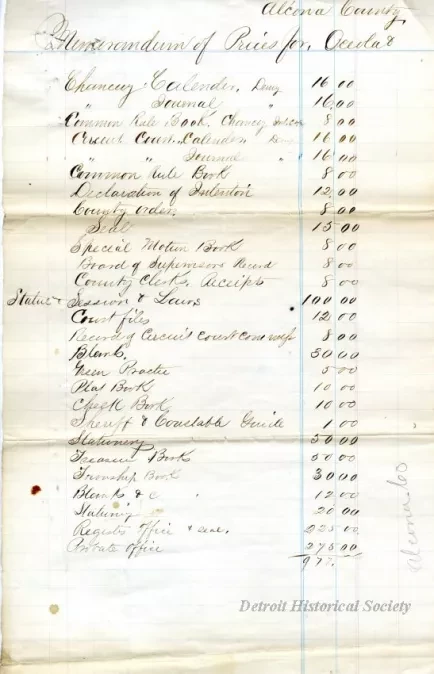 Alcona County
Memorandum of Prices for, Oceola &
Chancery Calender, Demy 16 00
" Journal " 16 00
Common Rule Book, Chancery 8 00
Circuit Court Calender Demy 16 00
" " Journal " 16 00
Common Rule Book 8 00
Declaration of Intention 12 00
County Orders 8 00
Seal 15 00
Special Motion Book 8 00
Board of Supervisors Record 8 00
County Clerks Receipts 8 00
Statue & Session & Laws 100 00
Court files 12 00
Record of Circuit Court 8 00
Blanks. 50 00
Green Practice 5 00
Plat Book 10 00
Check Book 10 00
Sheriff & Constable Guide 1 00
Stationery 50 00
Treasurer Books 50 00
Township Book 30 00
Blanks & c 12 00
Stationery 20 00
Registers Office & seal. 225 00
Probate office 275 00
977.
Alcona Co
Detroit Historical Society